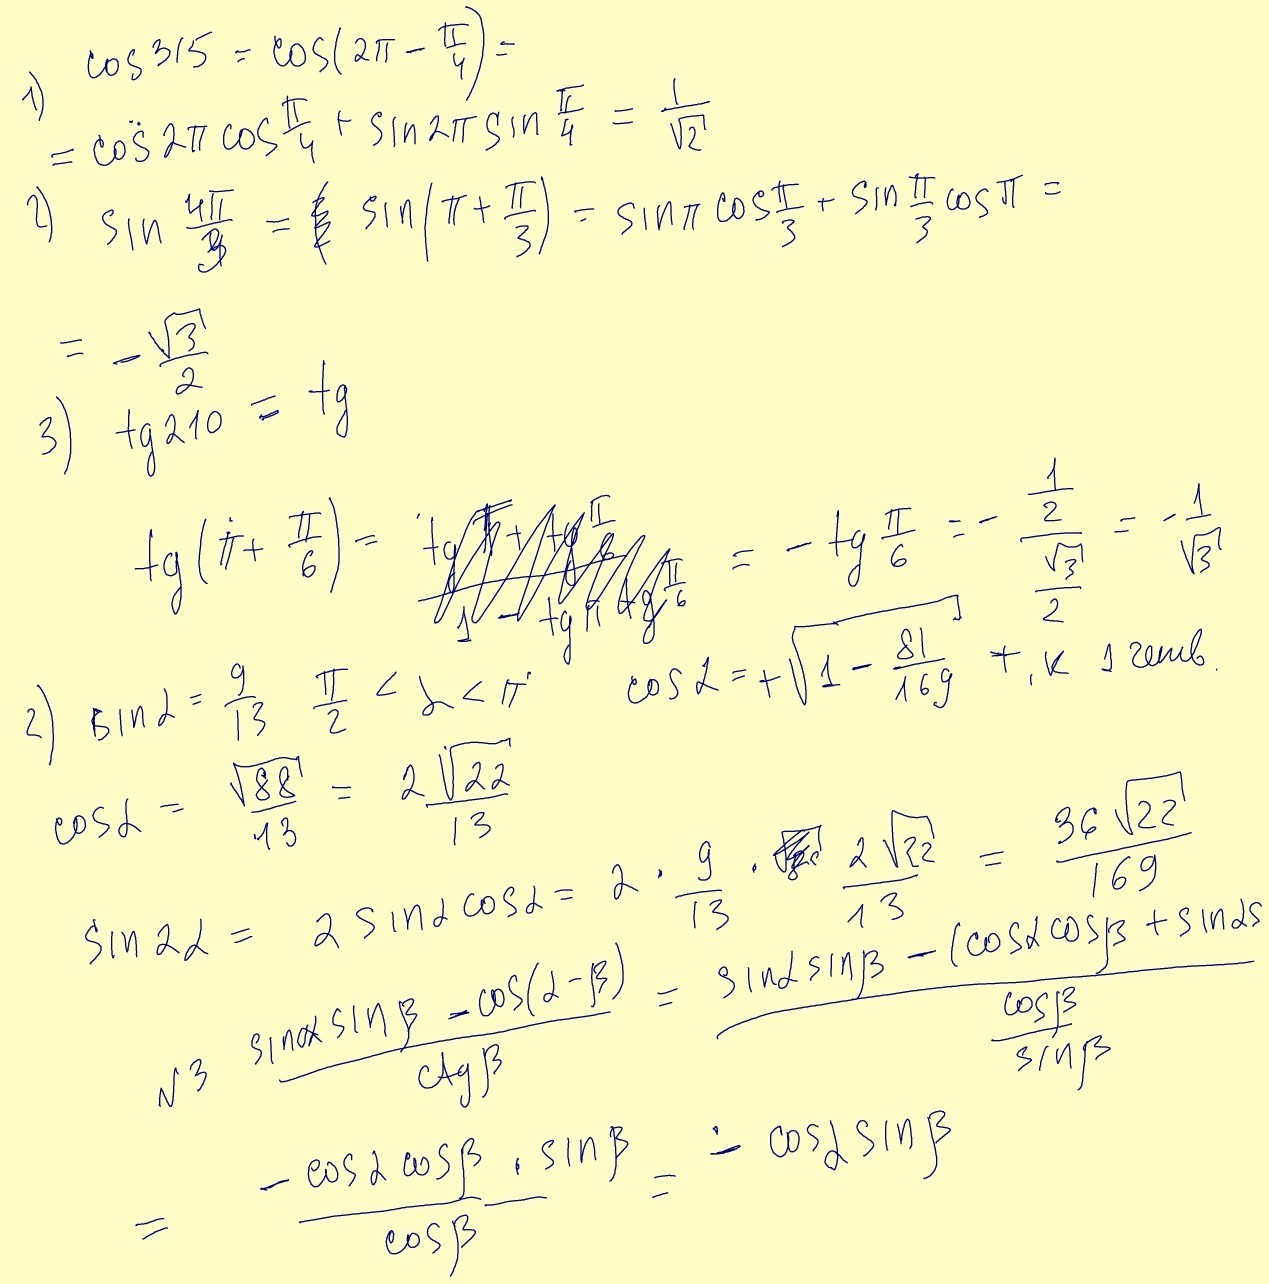 1) cos 315 = cos(2π - π/4) =
= cos 2π cos π/4 + sin 2π sin π/4 = 1/√2
2) sin 4π/3 = sin(π + π/3) = sin π cos π/3 + sin π/3 cos π =
= -√3/2
3) tg 210 = tg
tg(π + π/6) = = - tg π/6 = - (1/2)/(√3/2) = - 1/√3
2) sin α = 9/13 π/2 < α < π cos α = +√(1 - 81/169) +, к 1 четв.
cos α = √88/13 = 2√22/13
sin 2α = 2 sin α cos α = 2 · 9/13 · 2√22/13 = 36√22/169
N3 (sin α sin β - cos(α - β))/(ctg β) = (sin α sin β - (cos α cos β + sin α s)/(cos β/sin β)
= (- cos α cos β · sin β)/(cos β) = - cos α sin β